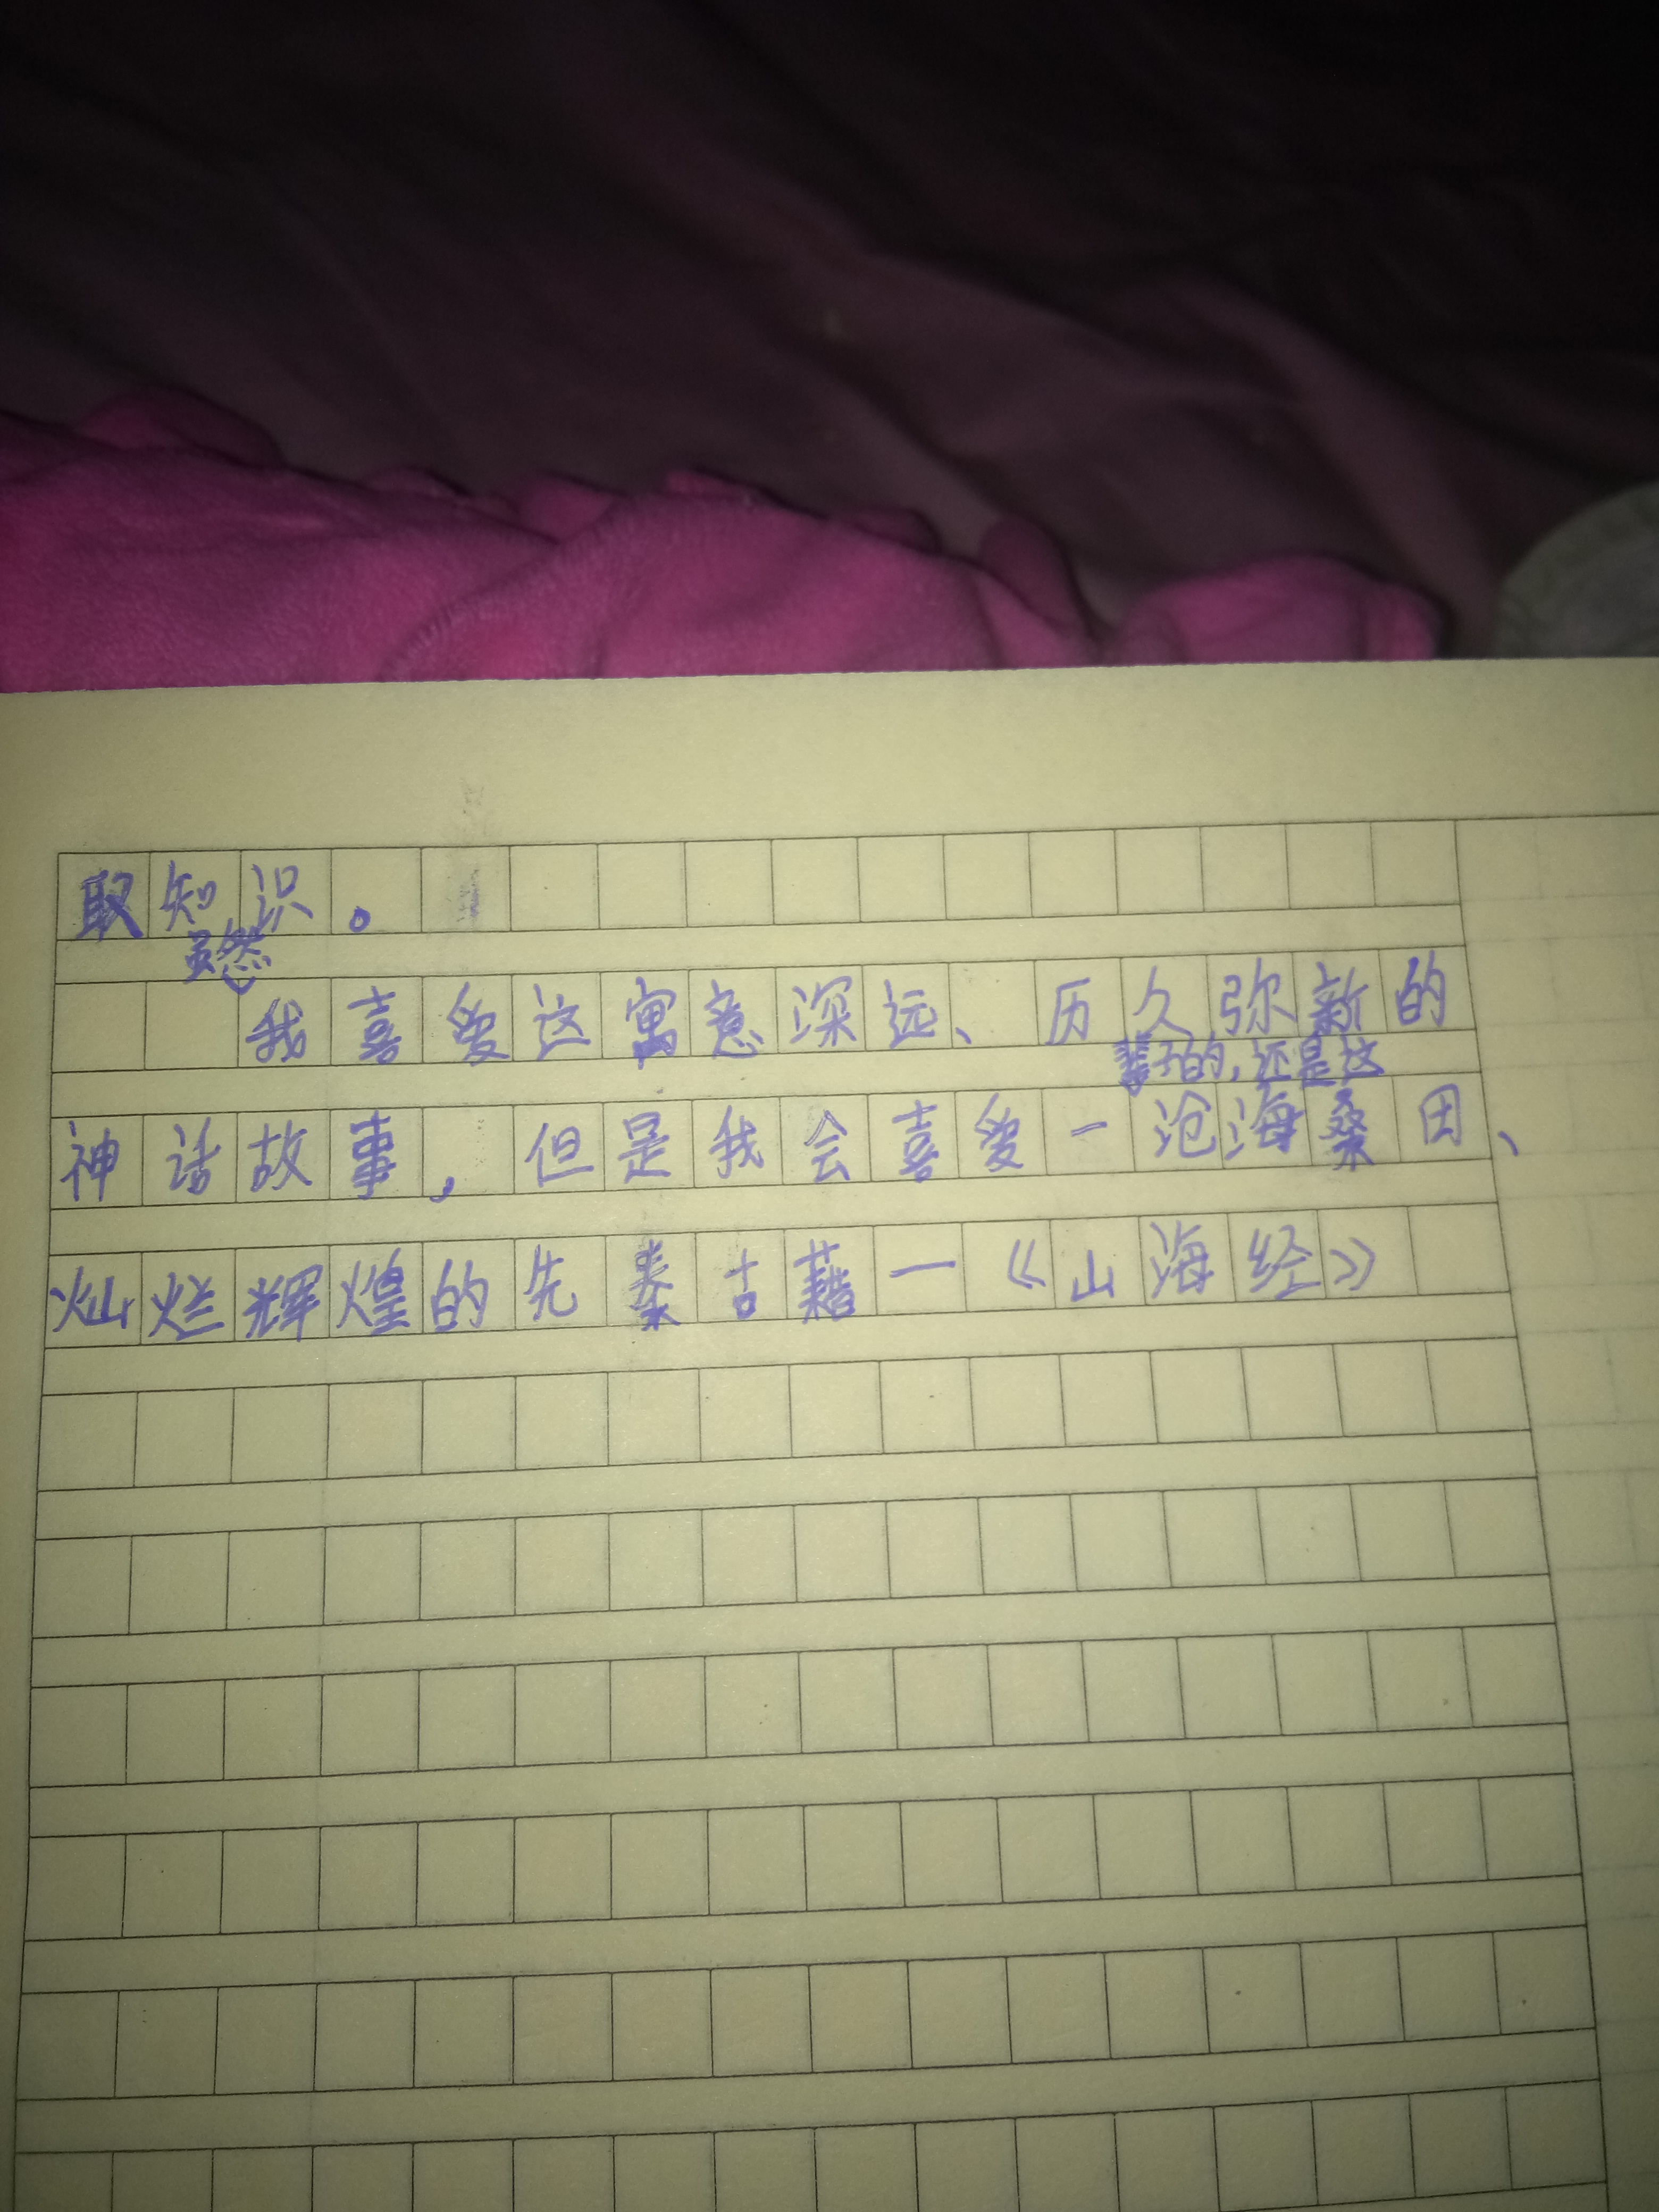 取知识。
虽然
我喜爱这寓意深远、历久弥新的
辈子的，还是这
神话故事，但是我会喜爱一沧海桑田、
灿烂辉煌的先秦古藉一《山海经》